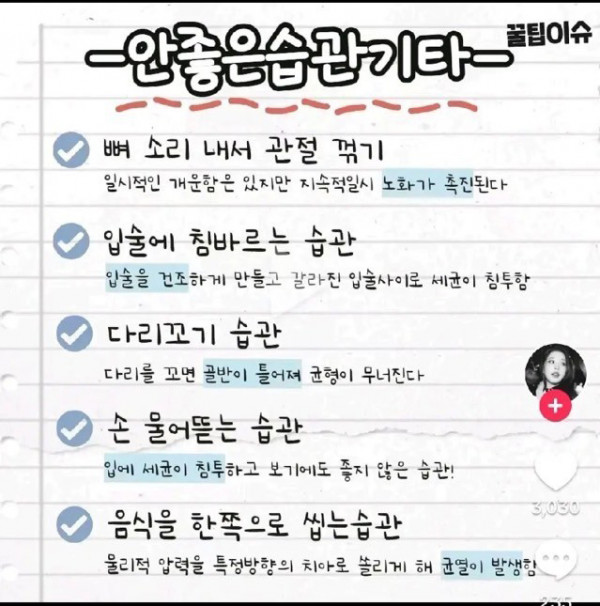 꿀팁이슈
안좋은습관기타
뼈 소리 내서 관절 꺾기
일시적인 개운함은 있지만 지속적일시 노화가 촉진된다
입술에 침바르는 습관
입술을 건조하게 만들고 갈라진 입술사이로 세균이 침투함
다리꼬기 습관
다리를 꼬면 골반이 틀어져 균형이 무너진다
손 물어뜯는 습관
입에 세균이 침투하고 보기에도 좋지 않은 습관!
3,030
음식을 한쪽으로 씹는습관
물리적 압력을 특정방향의 치아로 쏠리게 해 균열이 발생함